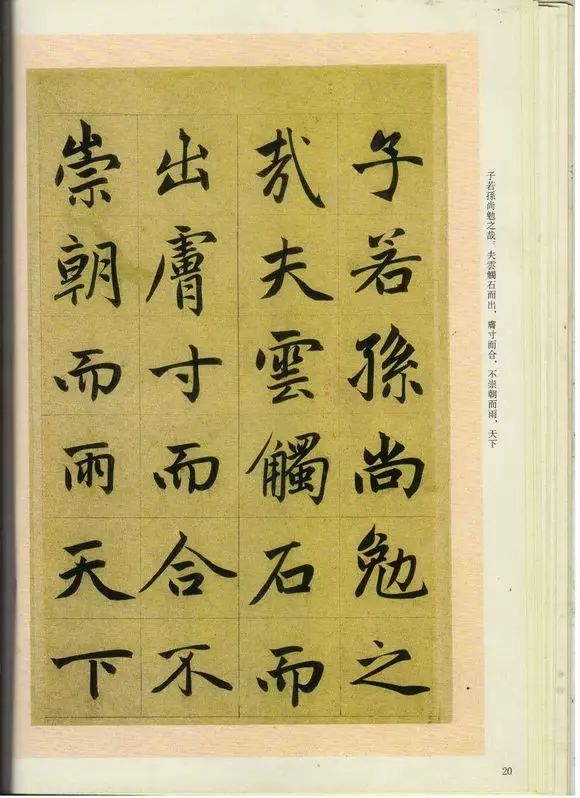 子若孫尚勉之
哉夫雲觸石而
出膚寸而合不
崇朝而雨天下
子若孫尚勉之哉。夫雲觸石而出，膚寸而合，不崇朝而雨，天下
20